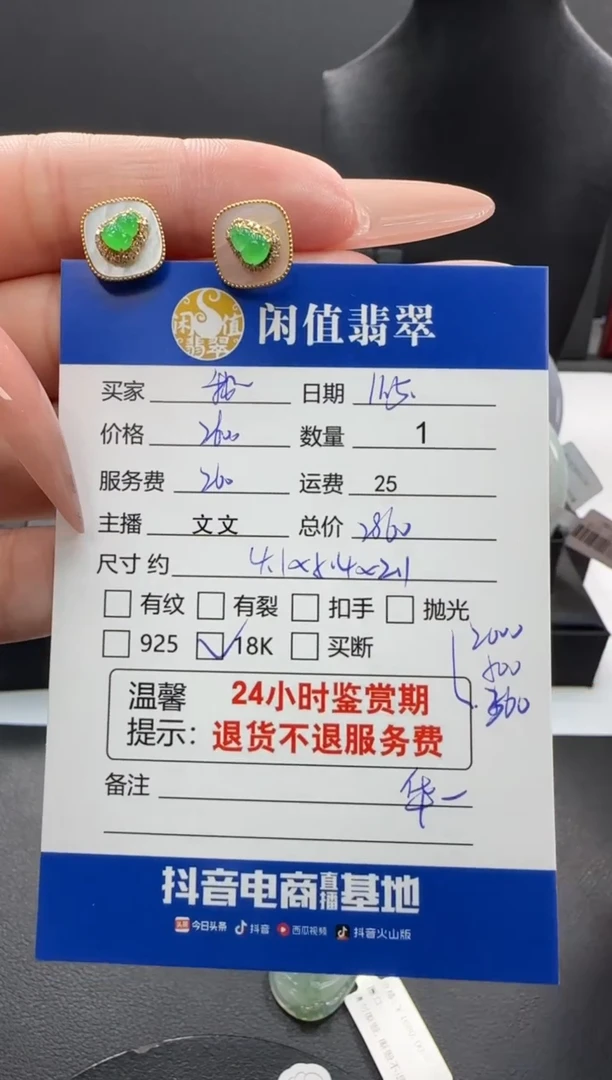 闲值翡翠
闲值翡翠
买家 日期 11.5.
价格 2600 数量 1
服务费 260 运费 25
主播 文文 总价 2860
尺寸 约 4.1×8.4×2.1
有纹 有裂 扣手 抛光
925 18K 买断
2000
800
温馨提示: 24小时鉴赏期
退货不退服务费
备注 华一
抖音电商直播基地
头条 今日头条 抖音 西瓜视频 抖音火山版